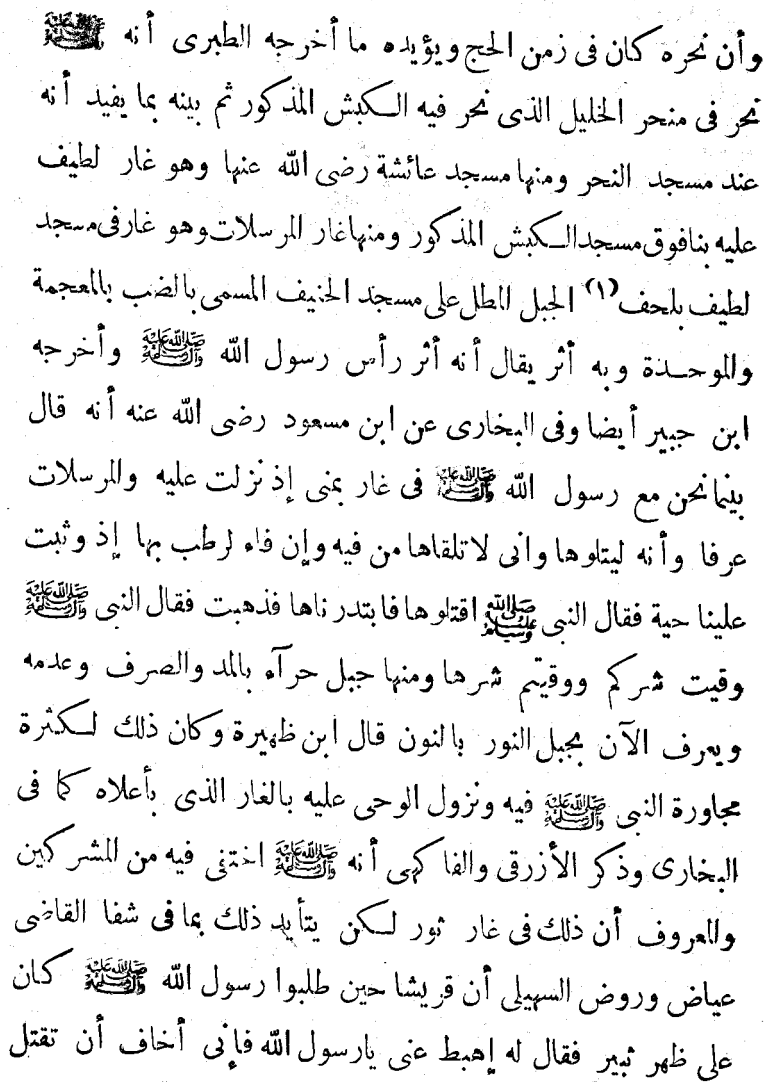 وأن نحره كان فى زمن الحج ويؤيده ما أخرجه الطبرى أنه ﷺ
نحر فى منحر الخليل الذى نحر فيه الكبش المذكور ثم بينه بما يفيد أنه
عند مسجد النحر ومنها مسجد عائشة رضى الله عنها وهو غار لطيف
عليه بنا فوق مسجد الكبش المذكور ومنها غار المرسلات وهو غار فى مسجد
لطيف بلحف (١) الجبل المطل على مسجد الخيف المسمى بالضب بالمعجمة
والموحدة وبه أثر يقال أنه أثر رأس رسول الله ﷺ وأخرجه
ابن جبير أيضا وفى البخارى عن ابن مسعود رضى الله عنه أنه قال
بينما نحن مع رسول الله ﷺ فى غار بمنى إذ نزلت عليه والمرسلات
عرفا وأنه ليتلوها وانى لاتلقاها من فيه وإن فاه لرطب بها إذ وثبت
علينا حية فقال النبى ﷺ اقتلوها فابتدرناها فذهبت فقال النبى ﷺ
وقيت شركم ووقيتم شرها ومنها جبل حرآء بالمد والصرف وعدمه
ويعرف الآن بجبل النور بالنون قال ابن ظهيرة وكان ذلك لكثرة
مجاورة النبى ﷺ فيه ونزول الوحى عليه بالغار الذى بأعلاه كما فى
البخارى وذكر الأزرقى والفاكهى أنه ﷺ اختفى فيه من المشركين
والمعروف أن ذلك فى غار ثور لكن يتأيد ذلك بما فى شفا القاضى
عياض وروض السهيلى أن قريشا حين طلبوا رسول الله ﷺ كان
على ظهر ثبير فقال له إهبط عنى يارسول الله فإنى أخاف أن تقتل